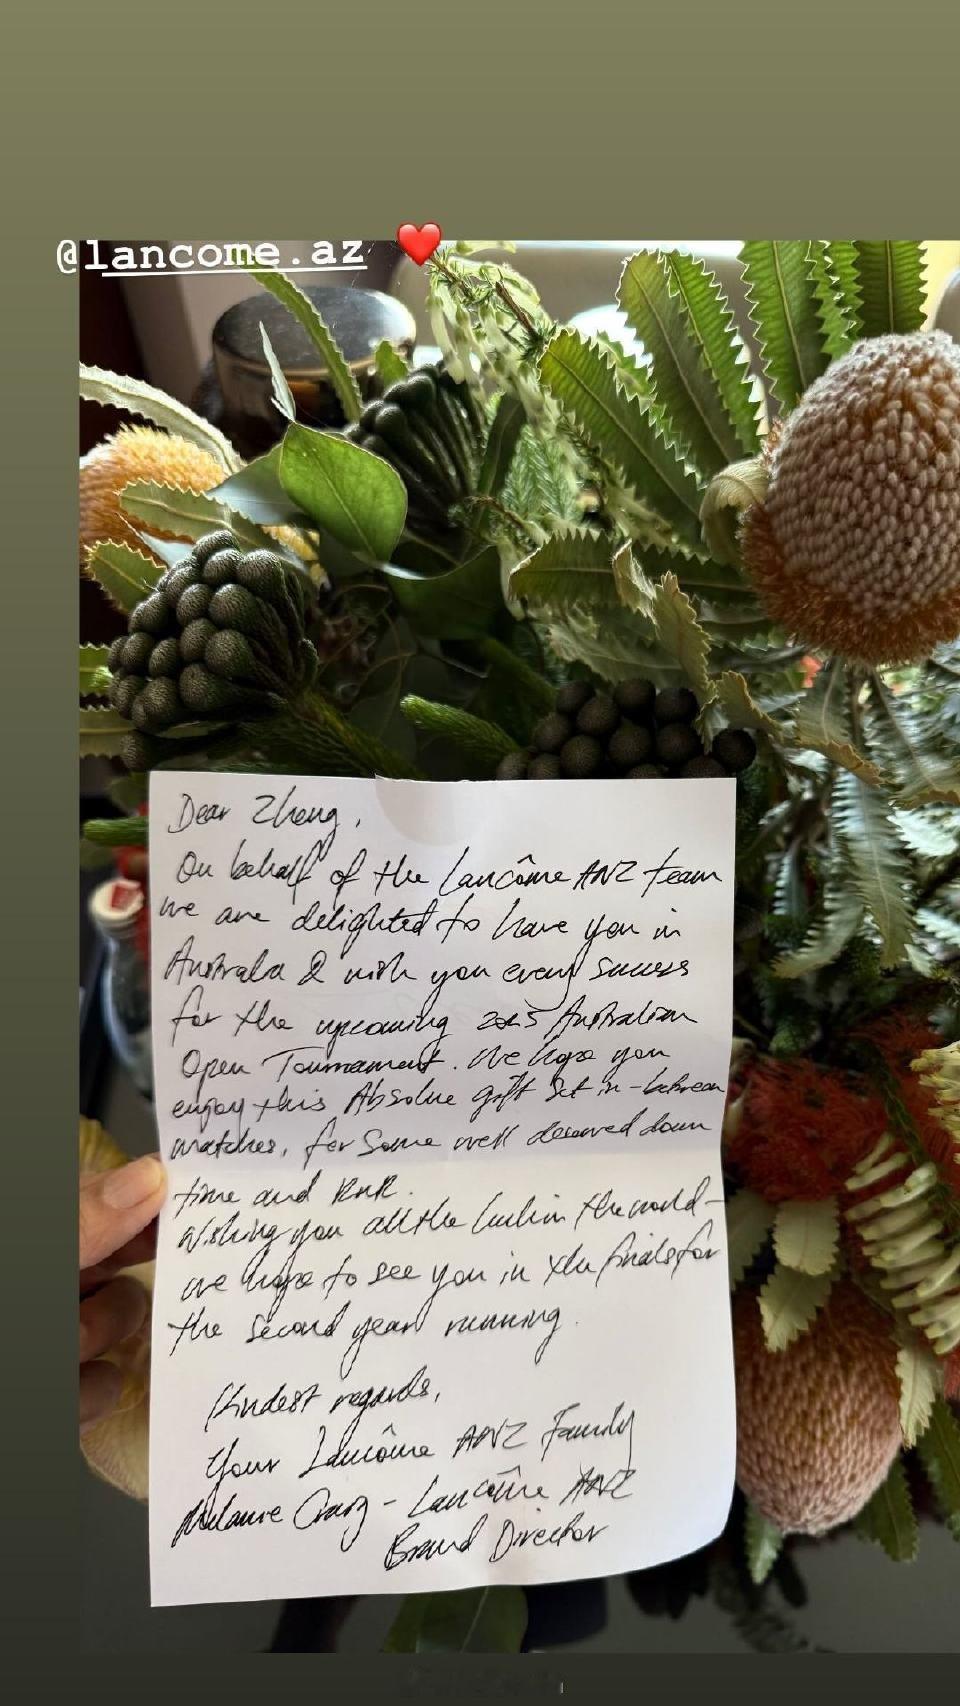 @lancome.az
Dear Zheng,
On behalf of the Lancôme ANZ team
we are delighted to have you in
Australia & wish you every success
for the upcoming 2025 Australian
Open Tournament. We hope you
enjoy this Absolue gift set in-between
matches, for some well deserved down
time and RnR.
Wishing you all the luck in the world -
we hope to see you in the finals for
the second year running.
Kindest regards,
Your Lancôme ANZ Family
Melanie - Lancôme ANZ
Brand Director